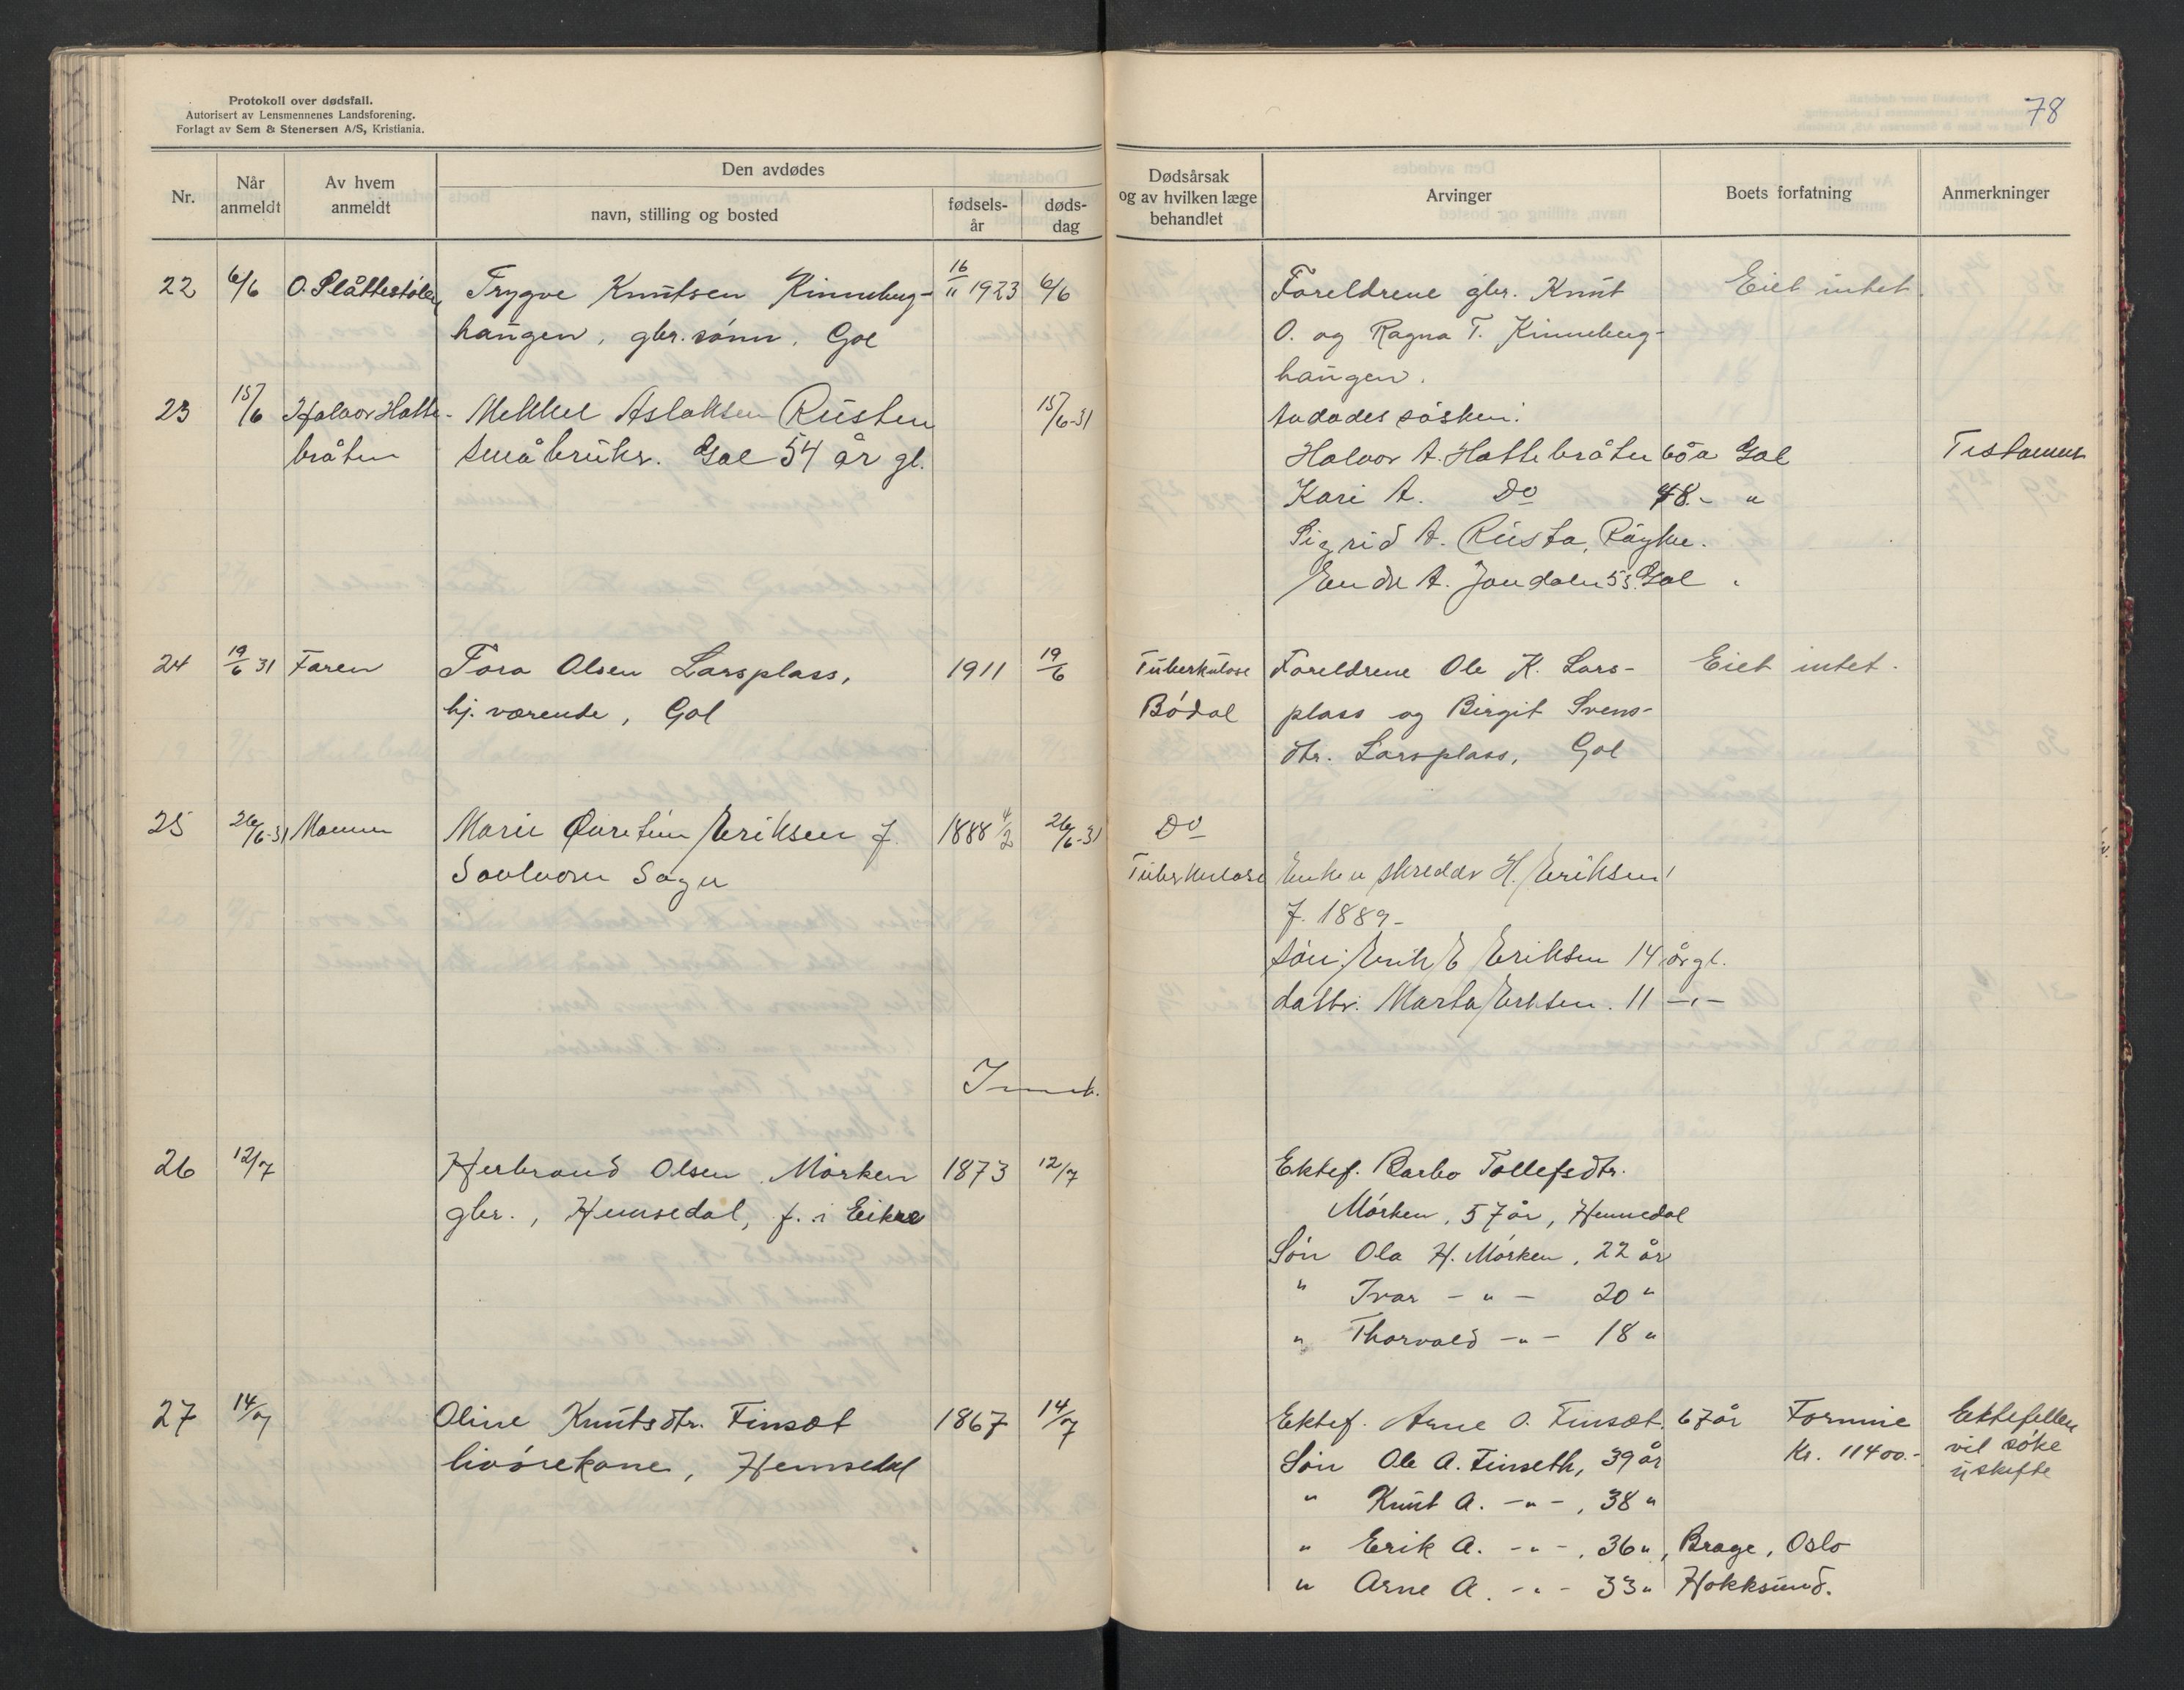 Protokoll over dødsfall.
Autorisert av Lensmennenes Landsforening.
Forlagt av Sem & Stenersen A/S, Kristiania.
78
Nr.
Når anmeldt
Av hvem anmeldt
Den avdødes
navn, stilling og bosted
fødsels-år
døds-dag
Dødsårsak og av hvilken læge behandlet
Arvinger
Boets forfatning
Anmerkninger
22 6/6 O. Slåttestølen Trygve Knutsen Kinneberg- 16/11 1923 6/6 Foreldrene gbr. Knut Eiet intet.
haugen, gbr. sønn, Gol O. og Ragna T. Kinneberg-
haugen.
23 15/6 Halvor Hatte- Mekkel Aslaksen Rusten 15/6-31 avdødes søsken:
bråten småbrukr. Gol 54 år gl. Halvor A. Hattebråten 60 a Gol Testament
Kari A. Do 48.- "
Sigrid A. Rusta, Røyke.
Endre A. Jondalen 53. Gol
24 19/6 31 Faren Tora Olsen Larsplass, 1911 19/6 Tuberkulose Foreldrene Ole K. Lars- Eiet intet.
hj. værende, Gol Bödal plass og Birgit Svens-
dtr. Larsplass, Gol
25 26/6-31 Mannen Marie Eriksen f. 1888 4/2 26/6-31 Do
Tuberkulose skredder H. Eriksen
f. 1889-
søn: Erik E Eriksen 14 år gl.
dattr. Marta Eriksen. 11 -"-
26 12/7 Herbrand Olsen Mørken 1873 12/7 Ektef. Barbo Tollefsdtr.
gbr., Hemsedal, f. i Eikre Mørken, 57 år, Hemsedal
Søn Ola H. Mørken, 22 år
" Ivar - " - 20 "
" Thorvald - " - 18 "
27 14/7 Oline Knutsdtr. Finset 1867 14/7 Ektef. Arne O. Finset. 67 år Formue Ektefellen
livørekone, Hemsedal Søn Ole A. Finseth, 39 år Kr. 11400.- vil søke
uskifte
" Knut A. - " -, 38 "
" Erik A. - " -, 36 ", Brage, Oslo
" Arne A. - " - 33 " Hokksund.